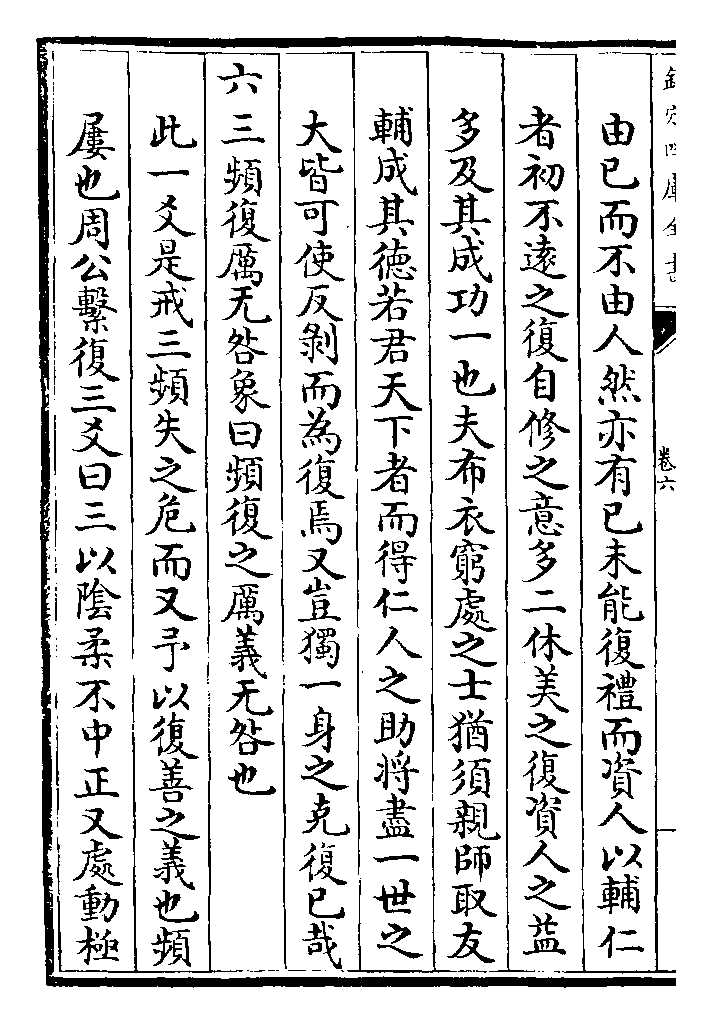 欽定四庫全書
卷六
由已而不由人然亦有已未能復禮而資人以輔仁
者初不逺之復自修之意多二休美之復資人之益
多及其成功一也夫布衣窮處之士猶須親師取友
輔成其徳若君天下者而得仁人之助将盡一世之
大皆可使反剝而為復焉又豈獨一身之克復已哉
六三頻復厲无咎象曰頻復之厲義无咎也
此一爻是戒三頻失之危而又予以復善之義也頻
屢也周公繫復三爻曰三以陰柔不中正又處動極